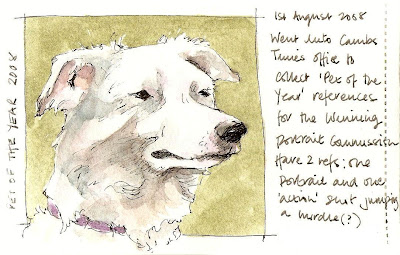 PET OF THE YEAR 2008
1st August 2008
Went into Cambs
Times office to
collect 'Pet of the
Year' references
for the winning
portrait commission
Have 2 refs: one
portrait and one
'action' shot jumping
a hurdle(?)